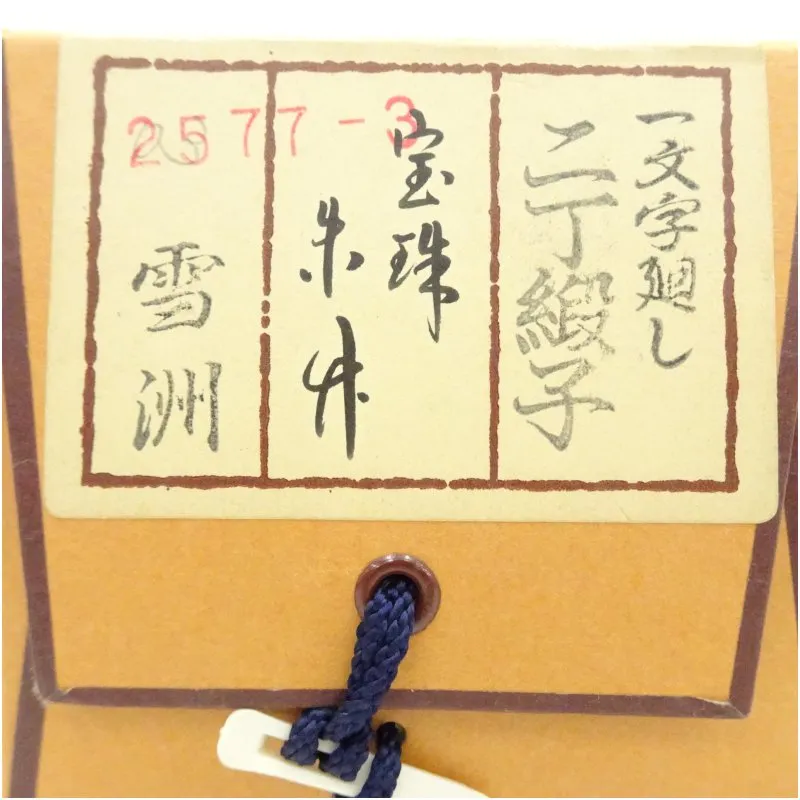 一文字廻し
二丁緞子
宝珠
朱竹
雪洲
2577-3